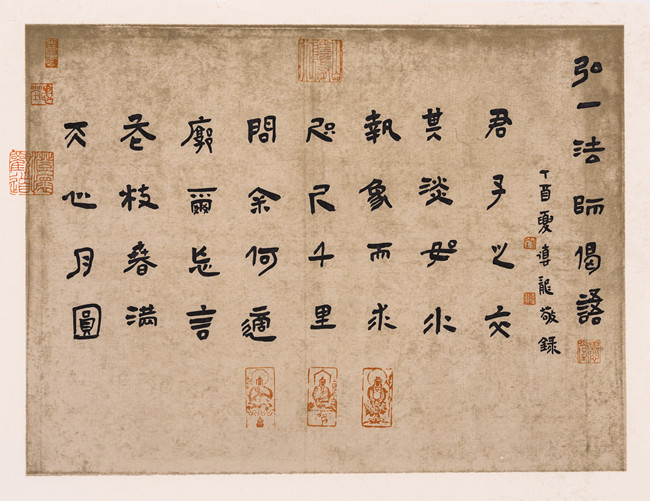 弘一法師偈語
丁酉夏導龍敬錄
君子之交
其淡如水
執象而求
咫尺千里
問余何適
廓爾忘言
花枝春滿
天心月圓